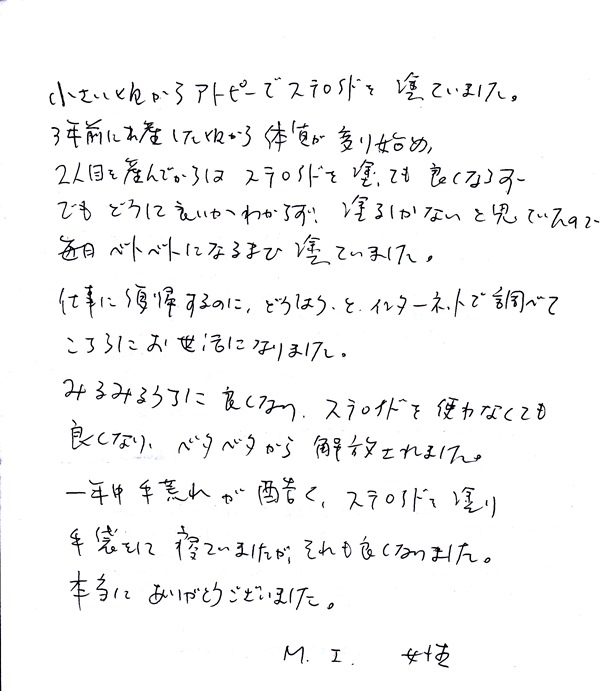 小さい頃からアトピーでステロイドを塗っていました。
3年前にお産した頃から体質が変り始め、
2人目を産んでからは ステロイドを塗っても良くならず
でもどうして良いかわからず、塗るしかないと思っていたので
毎日ベトベトになるまで塗っていました。
仕事に復帰するのに、どうしようと、インターネットで調べて
こちらにお世話になりました。
みるみるうちに良くなり、ステロイドを使わなくても
良くなり、ベタベタから解放されました。
一年中手荒れが酷く、ステロイドを塗り
手袋をして寝ていましたが、それも良くなりました。
本当にありがとうございました。
M. I. 女性